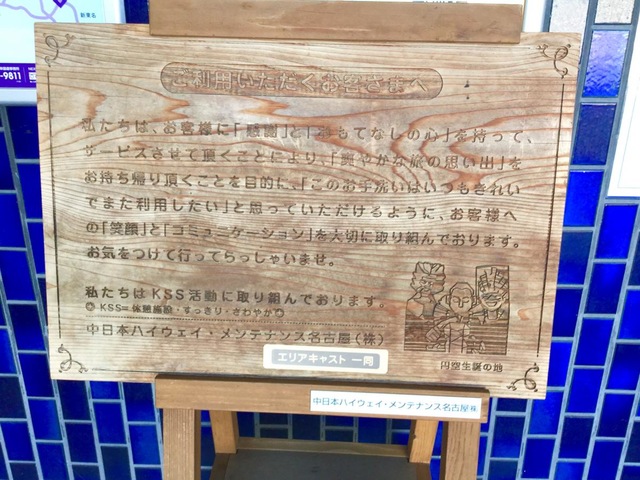 新東名
-9811
ご利用いただくお客さまへ
私たちは、お客様に「感謝」と「おもてなしの心」を持って、
サービスさせて頂くことにより、「爽やかな旅の思い出」を
お持ち帰り頂くことを目的に、「このお手洗いはいつもきれい
でまた利用したい」と思っていただけるように、お客様へ
の「笑顔」と「コミュニケーション」を大切に取り組んでおります。
お気をつけて行ってらっしゃいませ。
私たちはKSS活動に取り組んでおります。
◎ KSS=休憩施設・すっきり・さわやか◎
中日本ハイウェイ・メンテナンス名古屋(株)
エリアキャスト 一同
円空生誕の地
中日本ハイウェイ・メンテナンス名古屋㈱